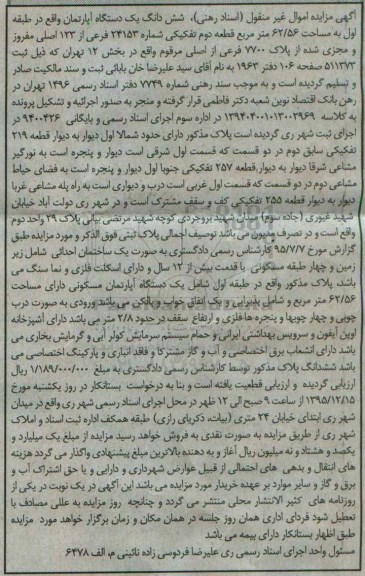 آگهی مزایده اموال غیر منقول (اسناد رهنی)، شش دانگ یک دستگاه آپارتمان واقع در طبقه
اول به مساحت ۶۲/۵۶ متر مربع قطعه دوم تفکیکی شماره ۲۴۱۵۳ فرعی از ۱۲۳ اصلی مفروز
و مجزی شده از پلاک ۷۷۰۰ فرعی از اصلی مرقوم واقع در بخش ۱۲ تهران که ذیل ثبت
۵۱۱۳۷۳ صفحه ۱۰۶ دفتر ۱۹۶۳ به نام آقای سید علیرضا خان بابائی ثبت و سند مالکیت صادر
و تسلیم گردیده است و به موجب سند رهنی شماره ۷۷۴۹ دفتر اسناد رسمی ۱۴۹۶ تهران در
رهن بانک اقتصاد نوین شعبه دکتر فاطمی قرار گرفته و منجر به صدور اجرائیه و تشکیل پرونده
به کلاسه ۱۳۹۴۰۴۰۰۱۰۱۳۰۰۲۹۶۹ در اداره سوم اجرای اسناد رسمی و بایگانی ۹۴۰۰۴۲۶ در
اجرای ثبت شهر ری گردیده است پلاک مذکور دارای حدود شمالا اول دیوار به دیوار قطعه ۲۱۹
تفکیکی سابق دوم در دو قسمت که قسمت اول شرقی است دیوار و پنجره است به نورگیر
مشاعی شرقا دیوار به دیوار قطعه ۲۵۷ تفکیکی جنوبا اول دیوار و پنجره است به فضای حیاط
مشاعی دوم در دو قسمت که قسمت اول غربی است درب و دیواری است به راه پله مشاعی غربا
دیوار به دیوار قطعه ۲۵۵ تفکیکی کف و سقف مشترک است و در شهر ری دولت آباد خیابان
شهید غیوری (جاده سوم) میدان شهید بروجردی کوچه شهید مرتضی بیاتی پلاک ۲۹ واحد دوم
واقع است و در تصرف مدیون می باشد توصیف اجمالی پلاک ثبتی فوق الذکر و مورد مزایده طبق
گزارش مورخ ۹۵/۷/۷ کارشناس رسمی دادگستری به صورت یک ساختمان احداثی شامل زیر
زمین و چهار طبقه مسکونی با قدمت بیش از ۱۲ سال و دارای اسکلت فلزی و نما سنگ می
باشد، پلاک مذکور واقع در طبقه اول شامل یک دستگاه آپارتمان مسکونی دارای مساحت
۶۲/۵۶ متر مربع و شامل پذیرایی و یک اتاق خواب و بالکن می باشد ورودی به صورت درب
چوبی و چهار چوبها و پنجره ها فلزی و ارتفاع سقف در حدود ۲/۸ متر می باشد دارای آشپزخانه
اوپن آیفون و سرویس بهداشتی ایرانی و حمام سیستم سرمایش کولر آبی و گرمایش بخاری می
باشد دارای انشعاب برق اختصاصی و آب و گاز مشترکا و فاقد انباری و پارکینگ اختصاصی می
باشد ششدانگ پلاک مذکور توسط کارشناس رسمی دادگستری به مبلغ ۱/۱۸۹/۰۰۰/۰۰۰ ریال
ارزیابی گردیده و ارزیابی قطعیت یافته است و بنا به درخواست بستانکار در روز یکشنبه مورخ
۱۳۹۵/۱۲/۱۵ از ساعت ۹ صبح الی ۱۲ ظهر در محل اجرای اسناد رسمی شهر ری واقع در میدان
شهر ری ابتدای خیابان ۲۴ متری (بیات، ذکریای رازی) طبقه همکف اداره ثبت اسناد و املاک
شهر ری از طریق مزایده به صورت نقدی به فروش خواهد رسید مزایده از مبلغ یک میلیارد و
یکصد و هشتاد و نه میلیون ریال آغاز و به دهنده بالاترین مبلغ پیشنهادی واگذار می گردد هزینه
های انتقال و بدهی های احتمالی از قبیل عوارض شهرداری و دارایی و یا حق اشتراک آب و
برق و گاز و سایر موارد بر عهده خریدار مورد مزایده می باشد این آگهی در یک نوبت در یکی از
روزنامه های کثیر الانتشار محلی منتشر می گردد و چنانچه روز مزایده به عللی مصادف با
تعطیل شود فردای اداری همان روز جلسه در همان مکان و زمان برگزار خواهد مورد مزایده
طبق اظهار بستانکار دارای بیمه می باشد
مسئول واحد اجرای اسناد رسمی ری علیرضا فردوسی زاده نائینی م، الف ۶۴۷۸